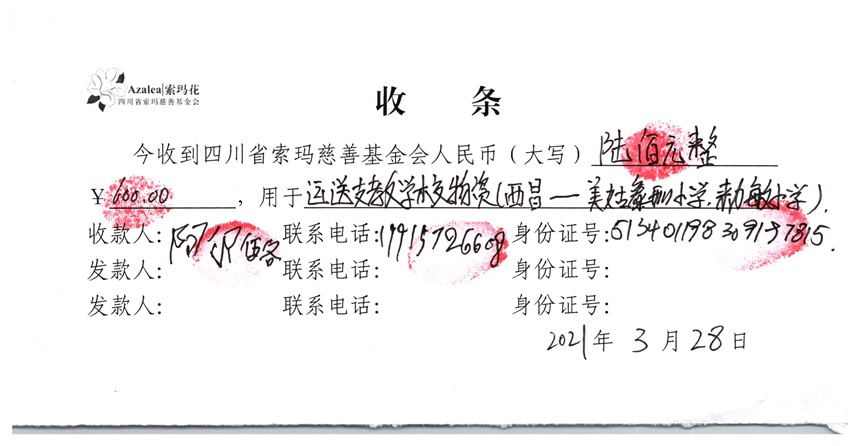 Azalea|索玛花
四川省索玛慈善基金会
收 条
今收到四川省索玛慈善基金会人民币（大写）陆佰元整
￥600.00，用于运送支教学校物资(西昌一美姑 小学, 小学).
收款人: 阿尔伍各 联系电话:19915726608 身份证号:513401198309137815.
发款人: 联系电话: 身份证号:
发款人: 联系电话: 身份证号:
2021年 3 月 28 日